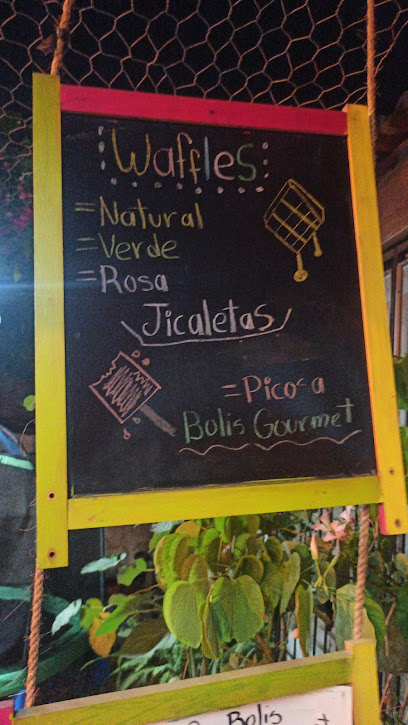 Waffles
= Natural
= Verde
= Rosa
Jicaletas
= Picosa
Bolis Gourmet
Bolis